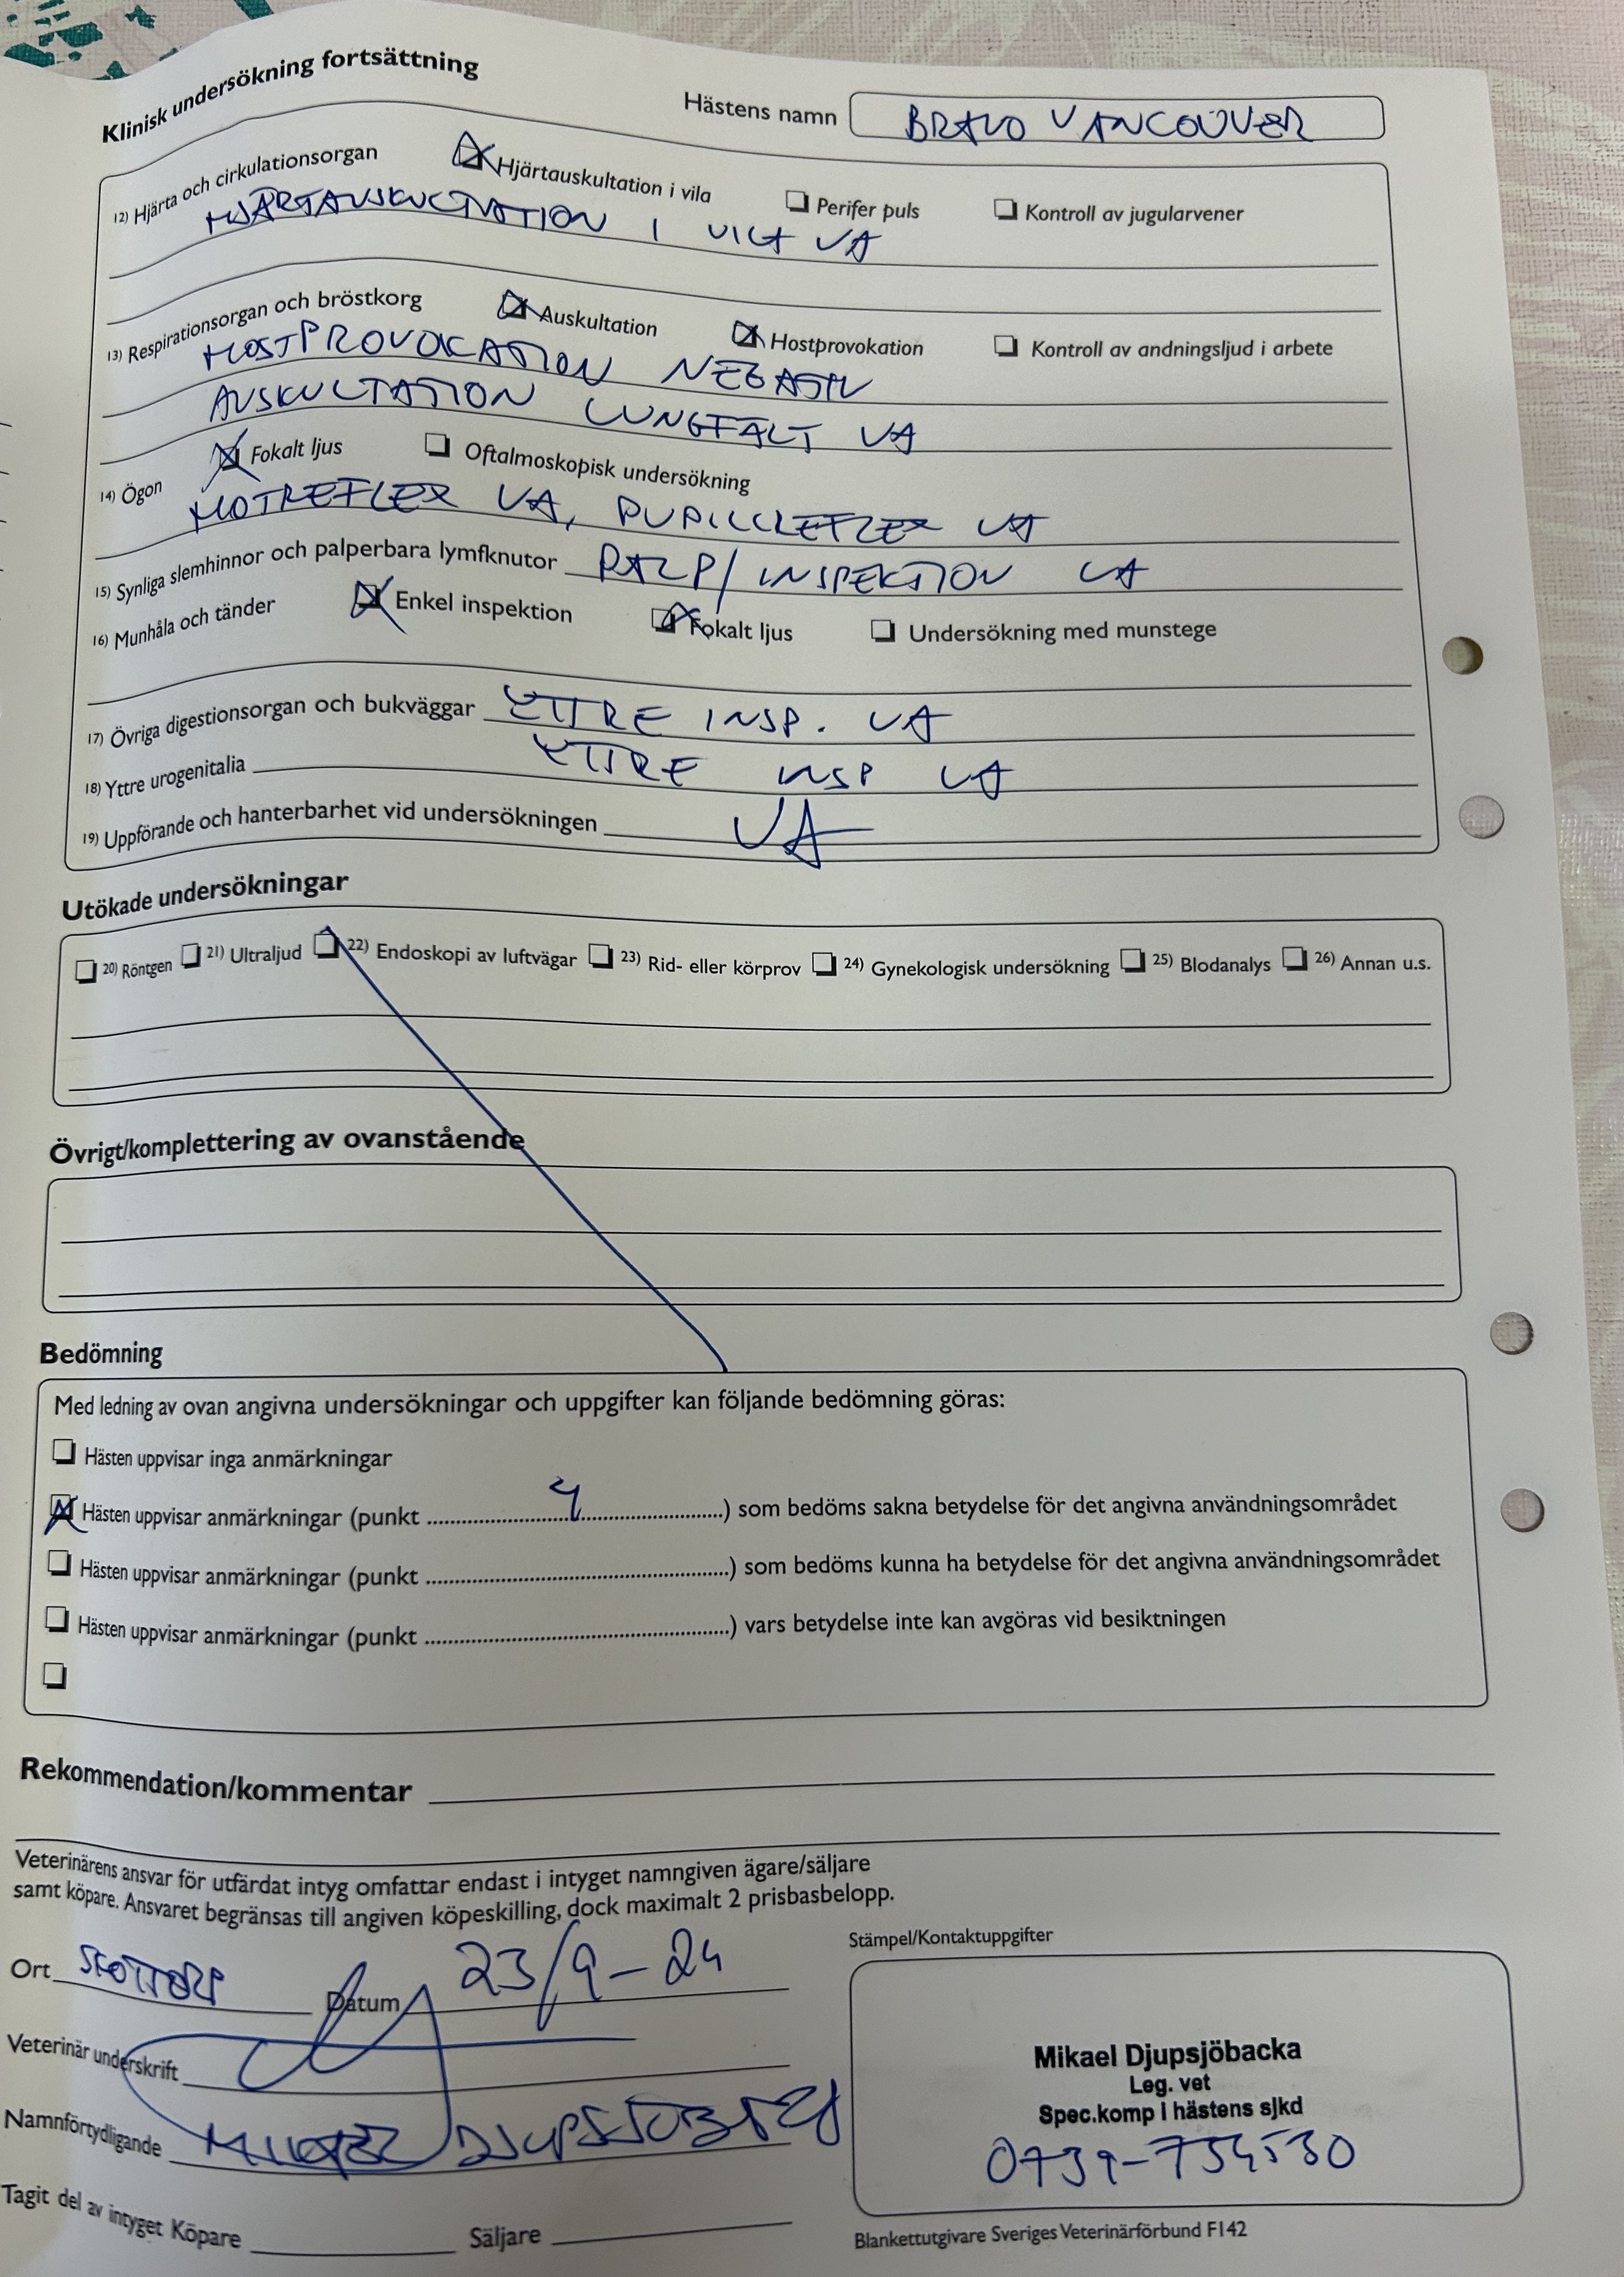 Klinisk undersökning fortsättning
Hästens namn BRAVO VANCOUVER
12) Hjärta och cirkulationsorgan Hjärtauskultation i vila Perifer puls Kontroll av jugularvener
HJÄRTAUSKULTATION I VILA VA
13) Respirationsorgan och bröstkorg Auskultation Hostprovokation Kontroll av andningsljud i arbete
HOSTPROVOKATION NEGATIV
AUSKULTATION LUNGFÄLT VA
14) Ögon Fokalt ljus Oftalmoskopisk undersökning
HOTREFLEX VA, PUPILLREFLEX VA
15) Synliga slemhinnor och palperbara lymfknutor PALP/INSPEKTION VA
16) Munhåla och tänder Enkel inspektion Fokalt ljus Undersökning med munstege
17) Övriga digestionsorgan och bukväggar YTTRE INSP. VA
18) Yttre urogenitalia YTTRE INSP VA
19) Uppförande och hanterbarhet vid undersökningen VA
Utökade undersökningar
20) Röntgen 21) Ultraljud 22) Endoskopi av luftvägar 23) Rid- eller körprov 24) Gynekologisk undersökning 25) Blodanalys 26) Annan u.s.
Övrigt/komplettering av ovanstående
Bedömning
Med ledning av ovan angivna undersökningar och uppgifter kan följande bedömning göras:
Hästen uppvisar inga anmärkningar
Hästen uppvisar anmärkningar (punkt 4) som bedöms sakna betydelse för det angivna användningsområdet
Hästen uppvisar anmärkningar (punkt ) som bedöms kunna ha betydelse för det angivna användningsområdet
Hästen uppvisar anmärkningar (punkt ) vars betydelse inte kan avgöras vid besiktningen
Rekommendation/kommentar
Veterinärens ansvar för utfärdat intyg omfattar endast i intyget namngiven ägare/säljare
samt köpare. Ansvaret begränsas till angiven köpeskilling, dock maximalt 2 prisbasbelopp.
Ort SKOTTORP Datum 23/9-24
Veterinär underskrift
Namnförtydligande MIKAEL DJUPSJÖBACKA
Tagit del av intyget Köpare Säljare
Stämpel/Kontaktuppgifter
Mikael Djupsjöbacka
Leg. vet
Spec.komp i hästens sjkd
0739-754530
Blankettutgivare Sveriges Veterinärförbund F142